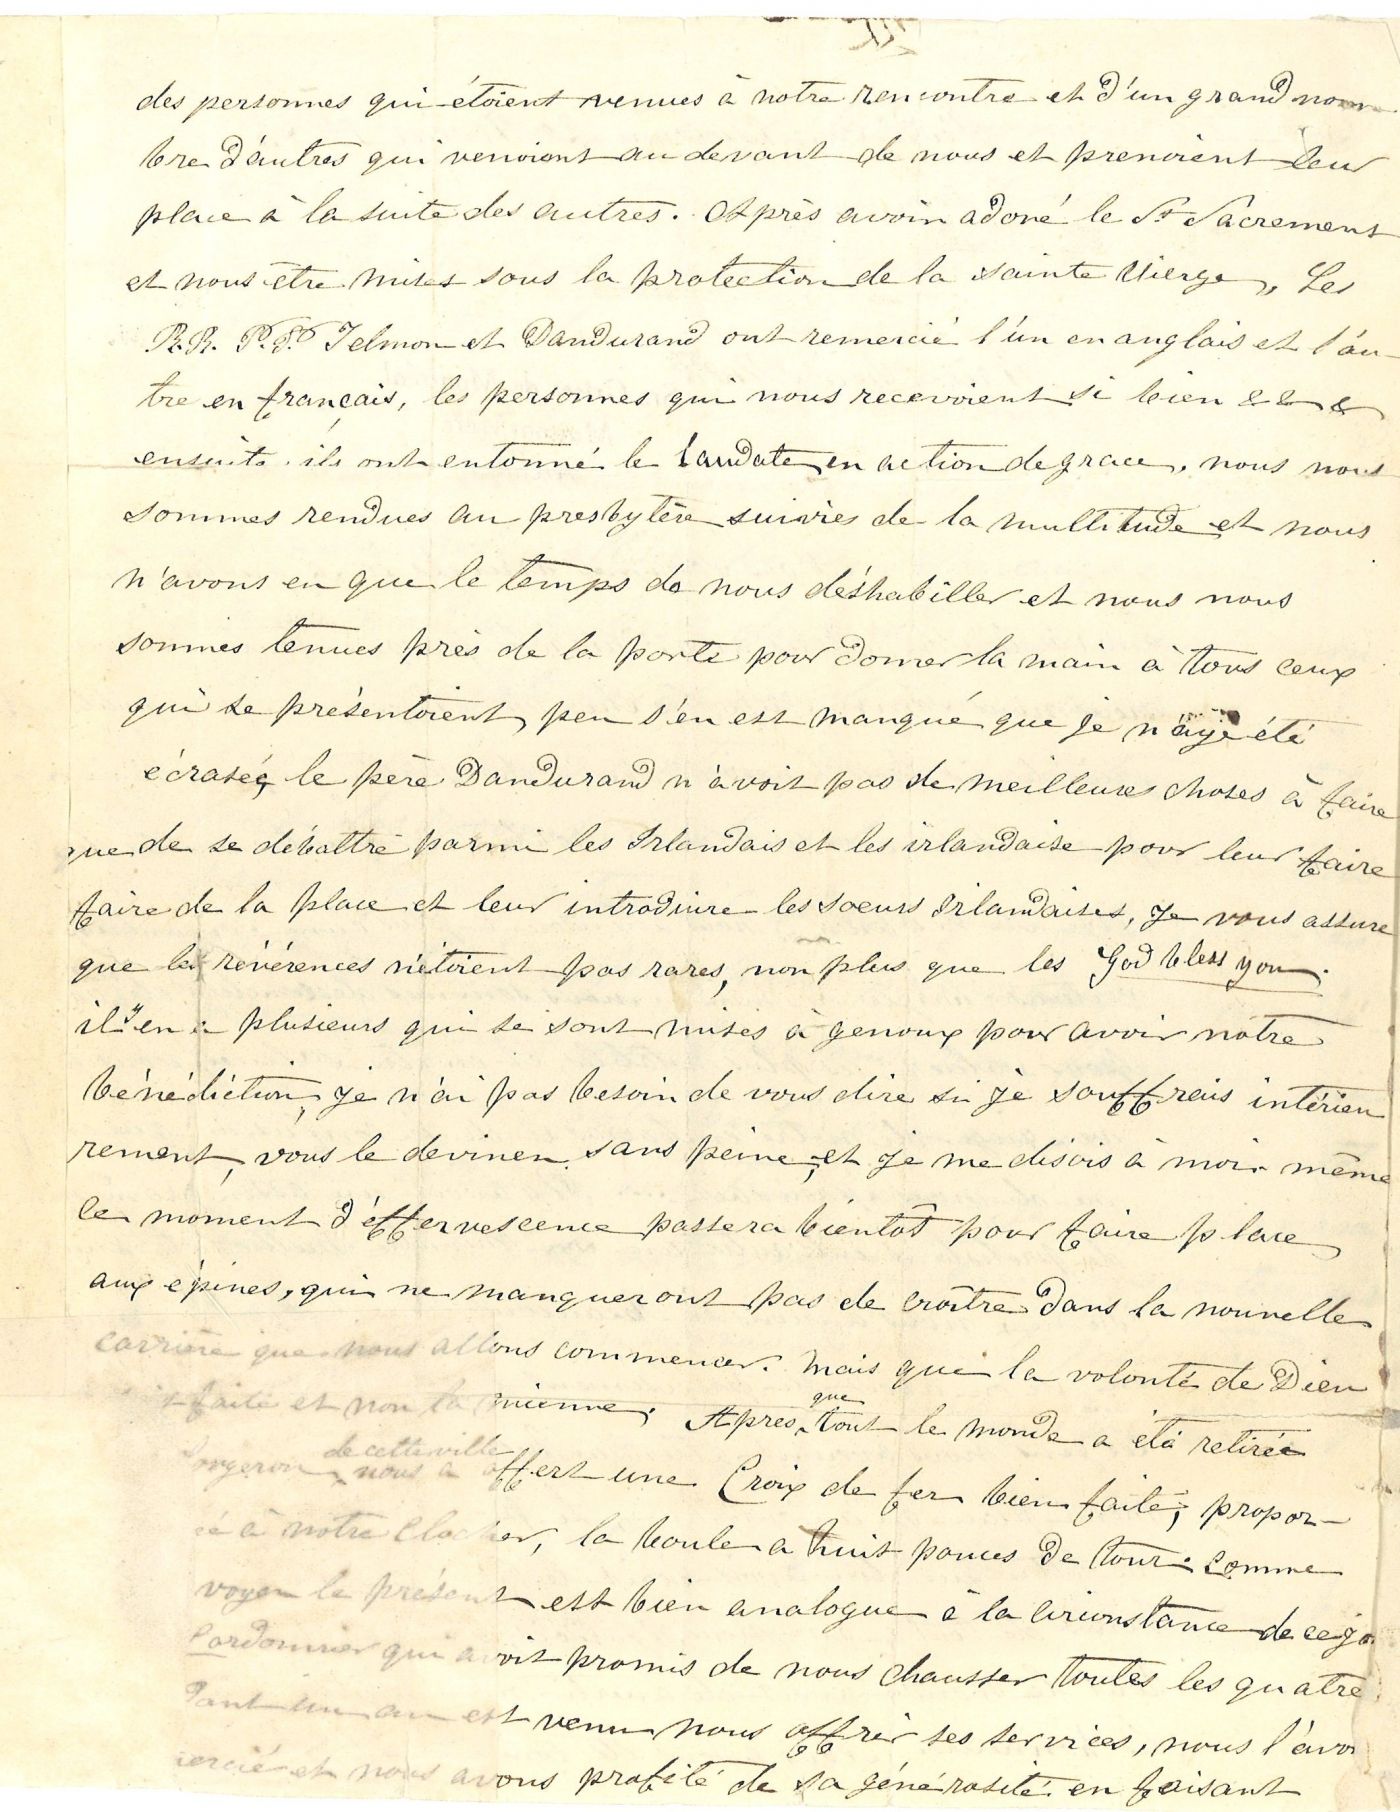 des personnes qui étoient venues à notre rencontre et d'un grand nom
bre d'autres qui venoient au devant de nous et prenoient leur
place à la suite des autres. Après avoir adoré le St Sacrement
et nous être mises sous la protection de la sainte Vierge, Les
R.R. P.P. Telmon et Dandurand ont remercié l'un en anglais et l'au-
tre en français, les personnes qui nous recevoient si bien & & &
ensuite ils ont entonné le Laudate en action de grace, nous nous
sommes rendues au presbytère suivies de la multitude et nous
n'avons eu que le temps de nous déshabiller et nous nous
sommes tenues près de la porte pour donner la main à tous ceux
qui se présentoient, peu s'en est manqué que je n'aye été
écrasée, le père Dandurand n'avoit pas de meilleures choses à faire
que de se débattre parmi les Irlandais et les irlandaise pour leur faire
faire de la place et leur introduire les soeurs Irlandaises, Je vous assure
que les révérences n'étoient pas rares, non plus que les God bless you.
il y en a plusieurs qui se sont mises à genoux pour avoir notre
bénédiction, je n'ai pas besoin de vous dire si je souffrois intérieu
rement, vous le devinez sans peine, et je me disois à moi-même
le moment d'éffervescence passera bientôt pour faire place
aux épines, qui ne manqueront pas de croître dans la nouvelle
carrière que nous allons commencer. Mais que la volonté de Dieu
faite et non la mienne. Après que tout le monde a été retirée
forgeron de cette ville nous a offert une Croix de fer bien faite, propor-
é à notre Clocher, la boule a huit pouces de tour. Comme
voyez le présent est bien analogue à la circonstance de ce jo
Cordonnier qui avoit promis de nous chausser toutes les quatre
dant un an est venu nous offrir ses services, nous l'avo
ercié et nous avons profité de sa générosité en faisant